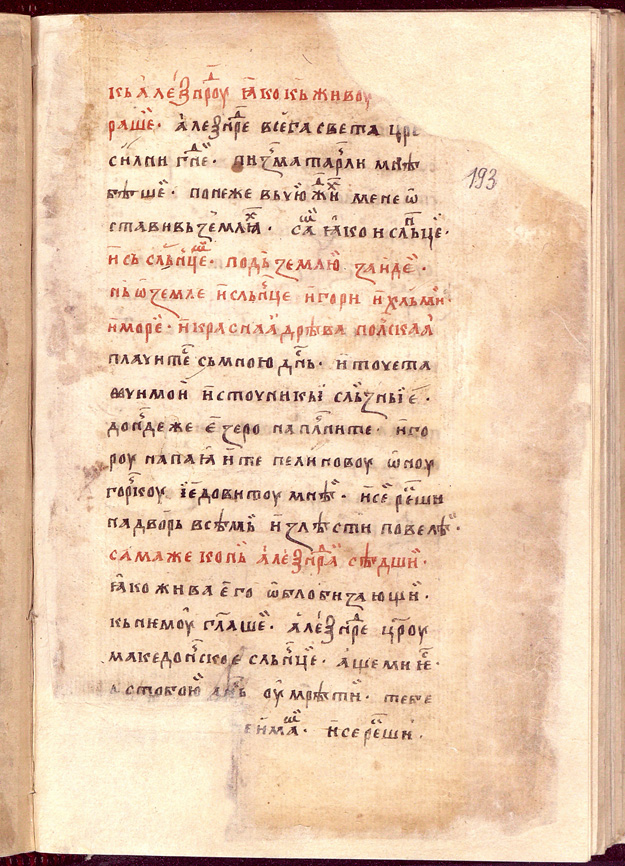 къ а҆леѯнⷣроу ꙗ҆ко къ живоу
раше҆· а҆леѯнⷣре всега света црь
силни гⷭ҇не· пи мата рли мнѣ
бѣше· понеже въ ю мене ѿ
ставивь землꙗⷯ· саⷨ ꙗ҆ко и слъⷩ҇це·
и҆ съ слъⷩ҇цеⷨ· подъ землю заиде·
нь ѿ земле и҆ слъⷩ҇це и҆ гори и҆ хлъми·
и҆ море· и҆ краснаа҆ дрѣва полскаꙗ
плачите съ мною дⷩ҇ь· и҆ тоу ета
ѳꙋ имои҆ и҆стоуникы слъꙁныѥ·
дондеже е҆ꙁеро наплните· и҆ го
роу напаꙗ҆ите пелиновоу ѿноу
горкоу і҆едовитоу мнѣ· и҆ се рекши
на дворь всѣмь и҆ꙁлѣсти повелѣ·
сама же конь а҆леѯнⷣра сѣдши·
ꙗ҆ко жива е҆го ѡ҆блобиꙁающи·
къ нимоу гл҃аше· а҆леѯнⷣре цр҃оу
македонское слъⷩ҇це· аще ми не·
с тобою днь оу҆мрѣти· тебе
е имаⷨ· и҆ се рекши·
193